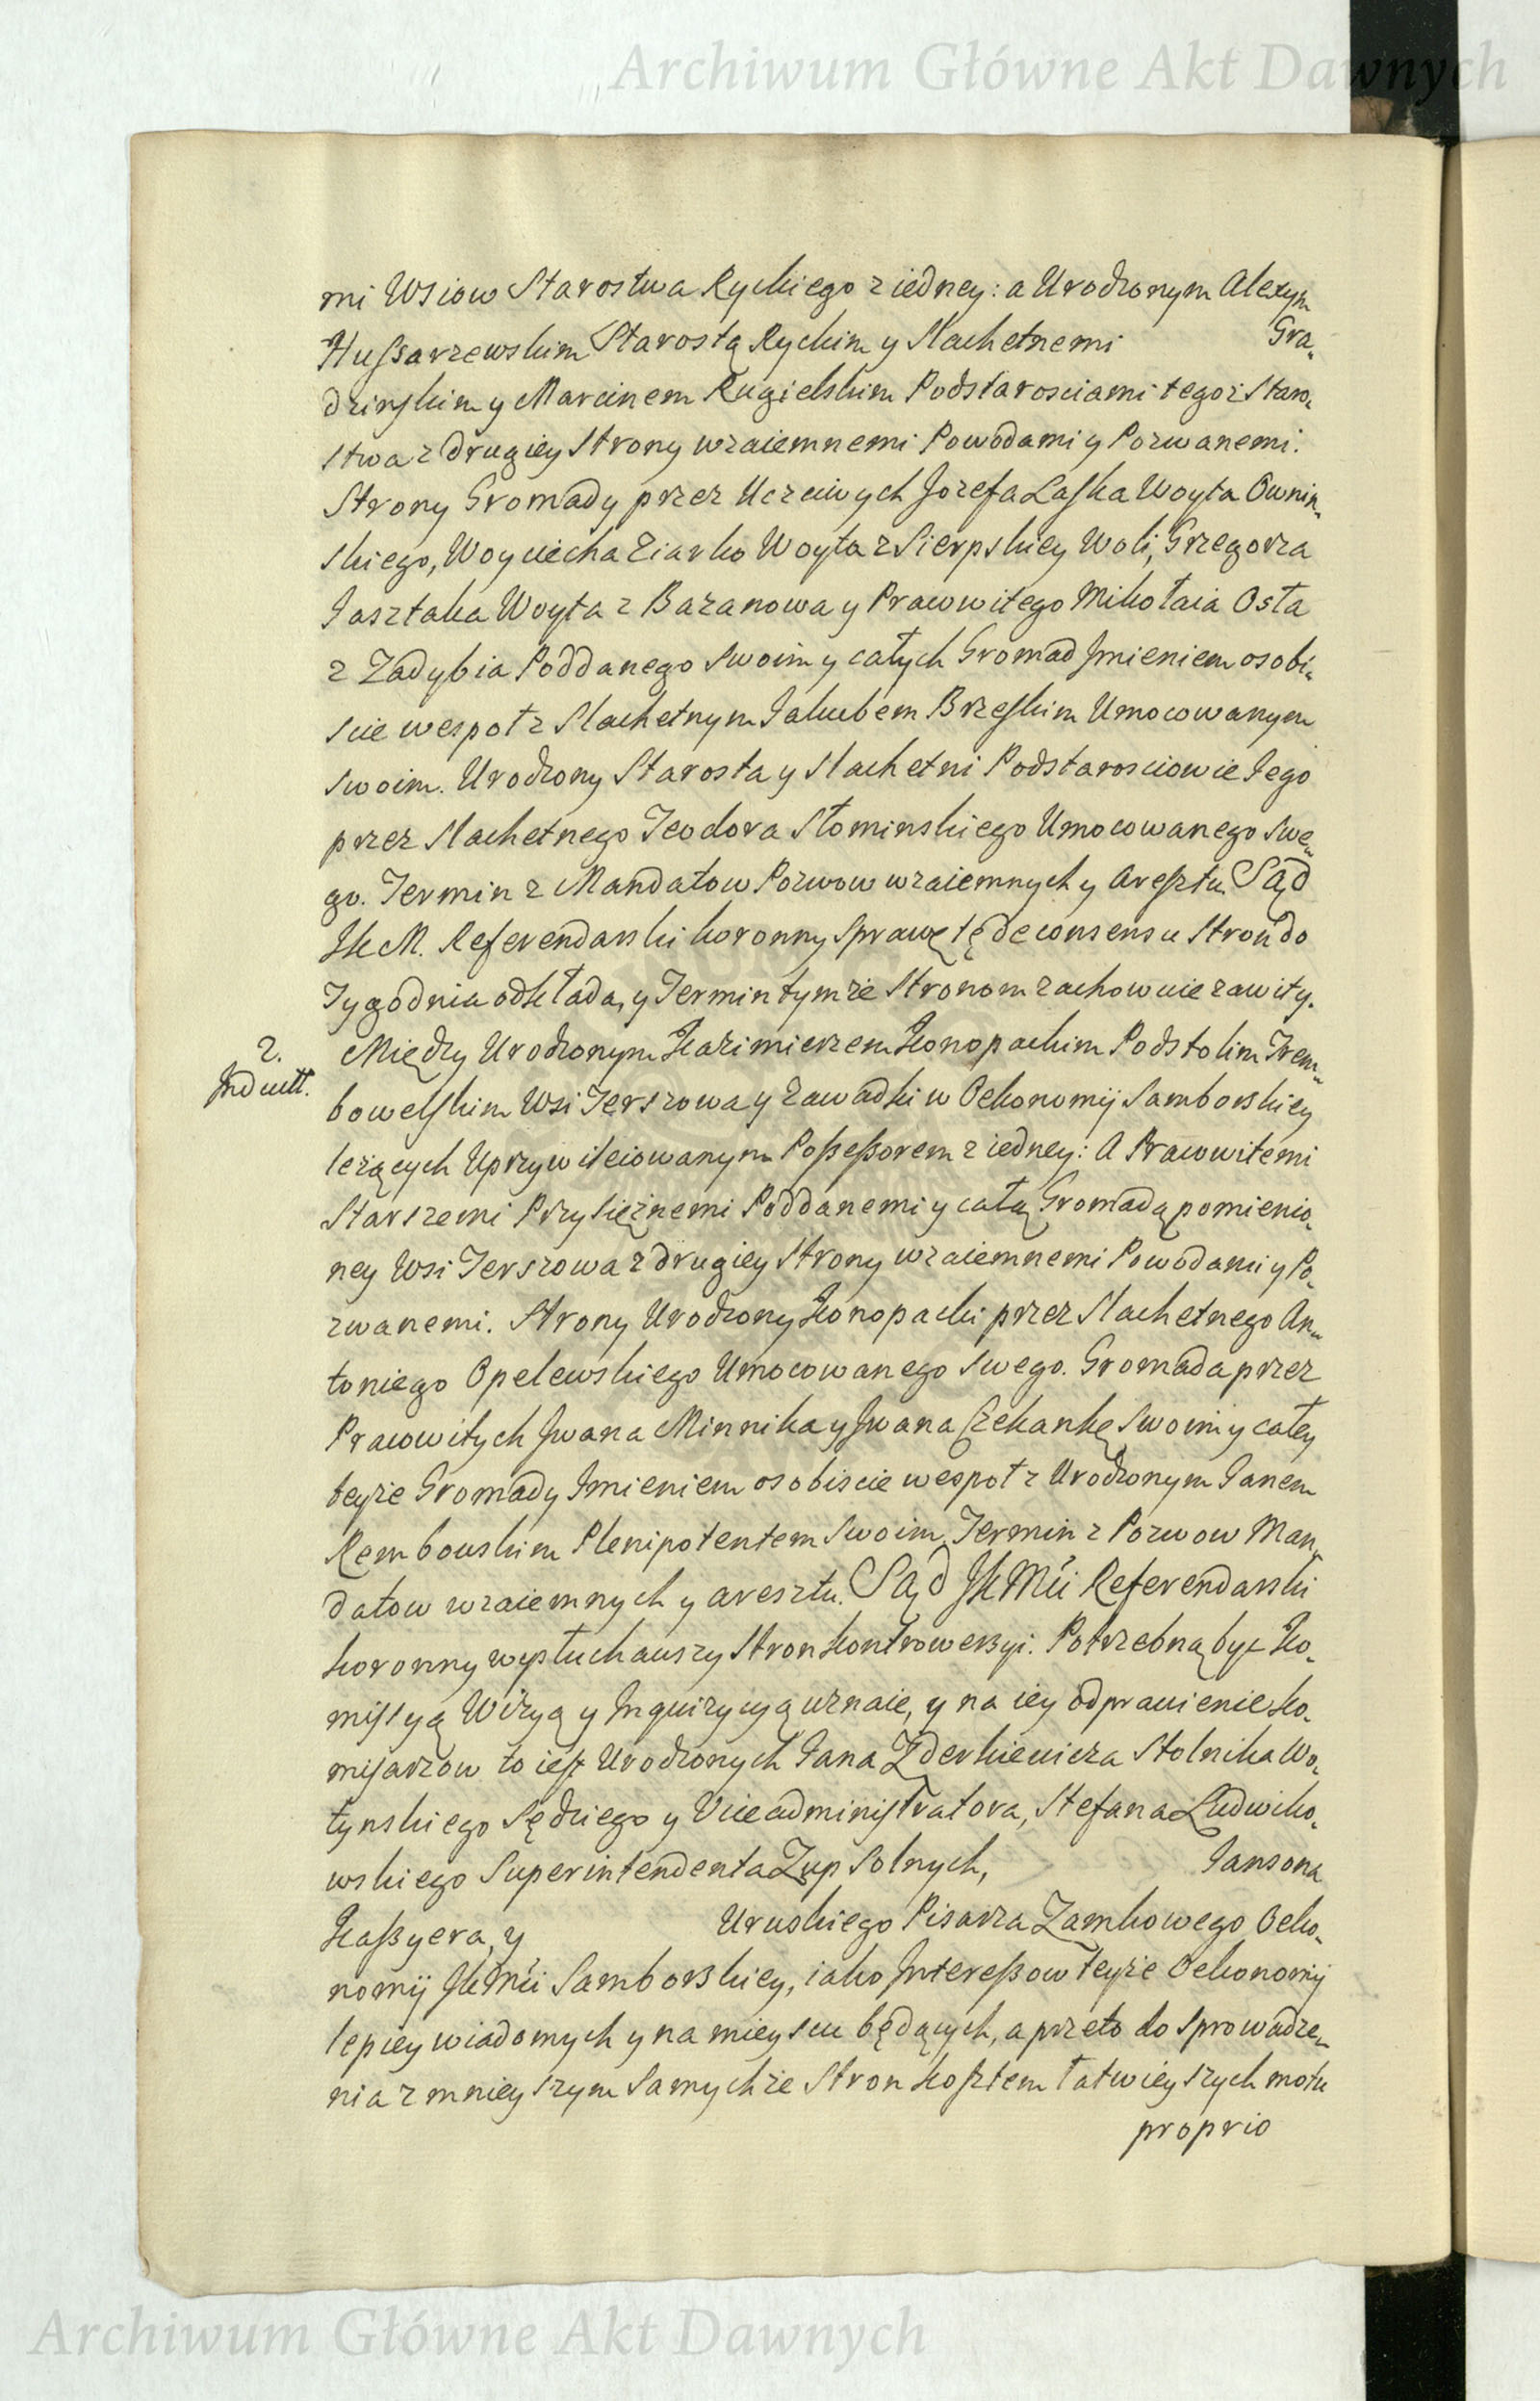 Archiwum Główne Akt Dawnych
mi Wsiow Starostwa Ryckiego z iedney: a Urodzonym Alexym
Hussarzewskim Starostą Ryckim y Slachetnemi Gra„
dzinskim y Marcinem Rugielskim Podstarosciami tegoż Staro„
stwa z drugiey Strony wzaiemnemi Powodami y Pozwanemi.
Strony Gromady przez Uczciwych Jozefa Laska Woyta Ownin„
skiego, Woyciecha Ziarko Woyta z Sierpskiey Woli, Grzegorza
Jasztaka Woyta z Bazanowa y Prawwitego Mikołaia Osła
z Zadybia Poddanego Swoim y całych Gromad Jmieniem osobi„
scie wespoł z Slachetnym Jakubem Brzeskim Umocowanym
swoim. Urodzony Starosta y Slachetni Podstarosciowie Jego
przez Slachetnego Teodora Słominskiego Umocowanego Swe„
go. Termin z Mandatow Pozwow wzaiemnych y Aresztu. Sąd
JKM. Referendarski koronny Sprawę tę de consensu Stron do
Tygodnia odkłada, y Termin tymże Stronom zachowuie zawity.
2.
Indult.
Między Urodzonym Kazimierzem Konopackim Podstolim Trem„
bowelskim Wsi Terszowa y Zawadki w Oekonomij Samborskiey
leżących Uprzywileiowanym Possessorem z iedney: A Prawwitemi
Starszemi Przysiężnemi Poddanemi y całą Gromadą pomienio„
ney Wsi Terszowa z drugiey Strony wzaiemnemi Powodami y Po„
zwanemi. Strony Urodzony Konopacki przez Slachetnego An„
toniego Opelewskiego Umocowanego Swego. Gromada przez
Prawwitych Jwana Minnika y Jwana Czekankę Swoim y całey
teyże Gromady Jmieniem osobiscie wespoł z Urodzonym Janem
Rembowskim Plenipotentem Swoim. Termin z Pozwow Man„
datow wzaiemnych y aresztu. Sąd JKMci Referendarski
koronny wysłuchawszy Stron kontrowersyi. Potrzebną być Ko„
missyą Wizyą y Inquizycyą uznaie, y na iey odprawienie Ko„
misarzow to iest Urodzonych Jana Zderkiewicza Stolnika Wo„
łynskiego Sędziego y Viceadministratora, Stefana Ludwiko„
wskiego Superintendenta Zup Solnych, Jansona
Kassyera, y Uruskiego Pisarza Zamkowego Oeko„
nomij JKMci Samborskiey, iako Interessow teyże Oekonomij
lepiey wiadomych y na mieyscu będących, a przeto do Sprowadze„
nia z mnieyszym Samychże Stron kosztem łatwieyszych motu
proprio
Archiwum Główne Akt Dawnych